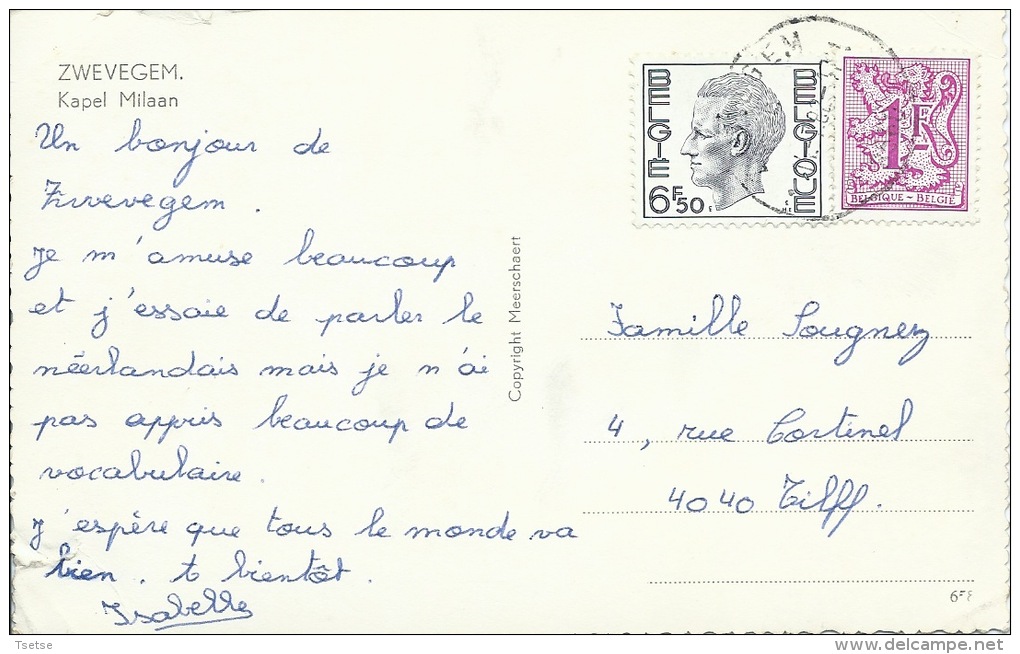 ZWEVEGEM.
Kapel Milaan
Un bonjour de
Zwevegem.
Je m'amuse beaucoup
et j'essaie de parler le
néerlandais mais je n'ai
pas appris beaucoup de
vocabulaire.
J'espère que tous le monde va
bien. A bientôt.
Isabelle
Copyright Meerschaert
BELGIE
6F50
BELGIQUE
1F
BELGIQUE~BELGIË
Famille Sougnez
4, rue Cortinel
4040 Tilff.
Tsetse
http://www.delcampe.net